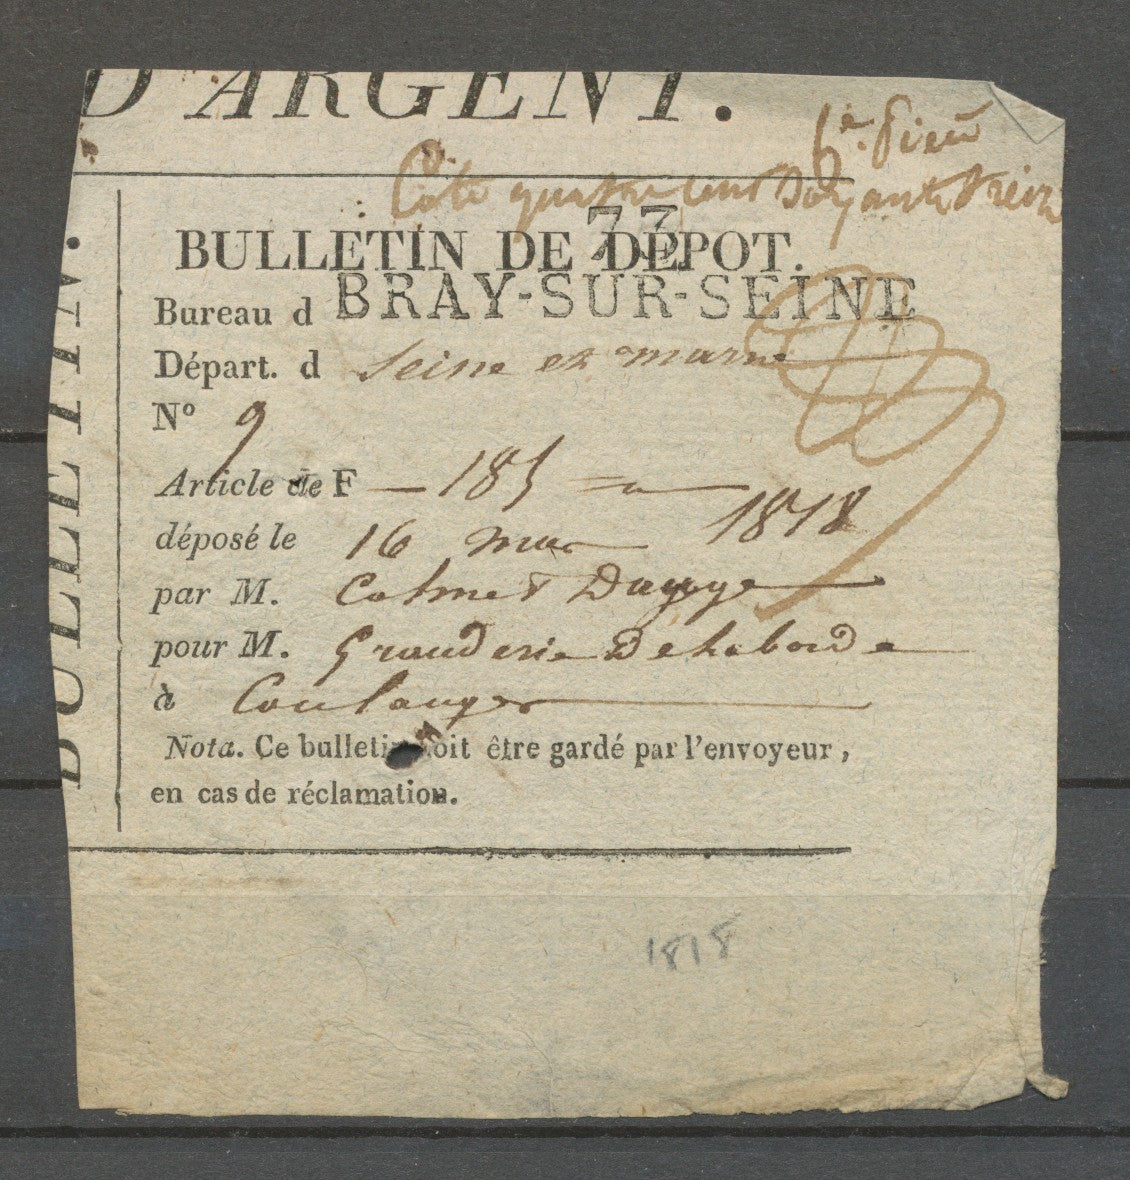 D'ARGENT.
6e. pièce
Cote quatre cent soixante treize
73
BULLETIN DE DÉPOT.
Bureau d BRAY-SUR-SEINE
Départ. d Seine et marne
No 9
Article de F — 185 =
déposé le 16 mars 1818
par M. Colmet Dayge
pour M. Granderie Delaborde
à Coulanges
Nota. Ce bulletin doit être gardé par l'envoyeur,
en cas de réclamation.
BULLETIN.
1818